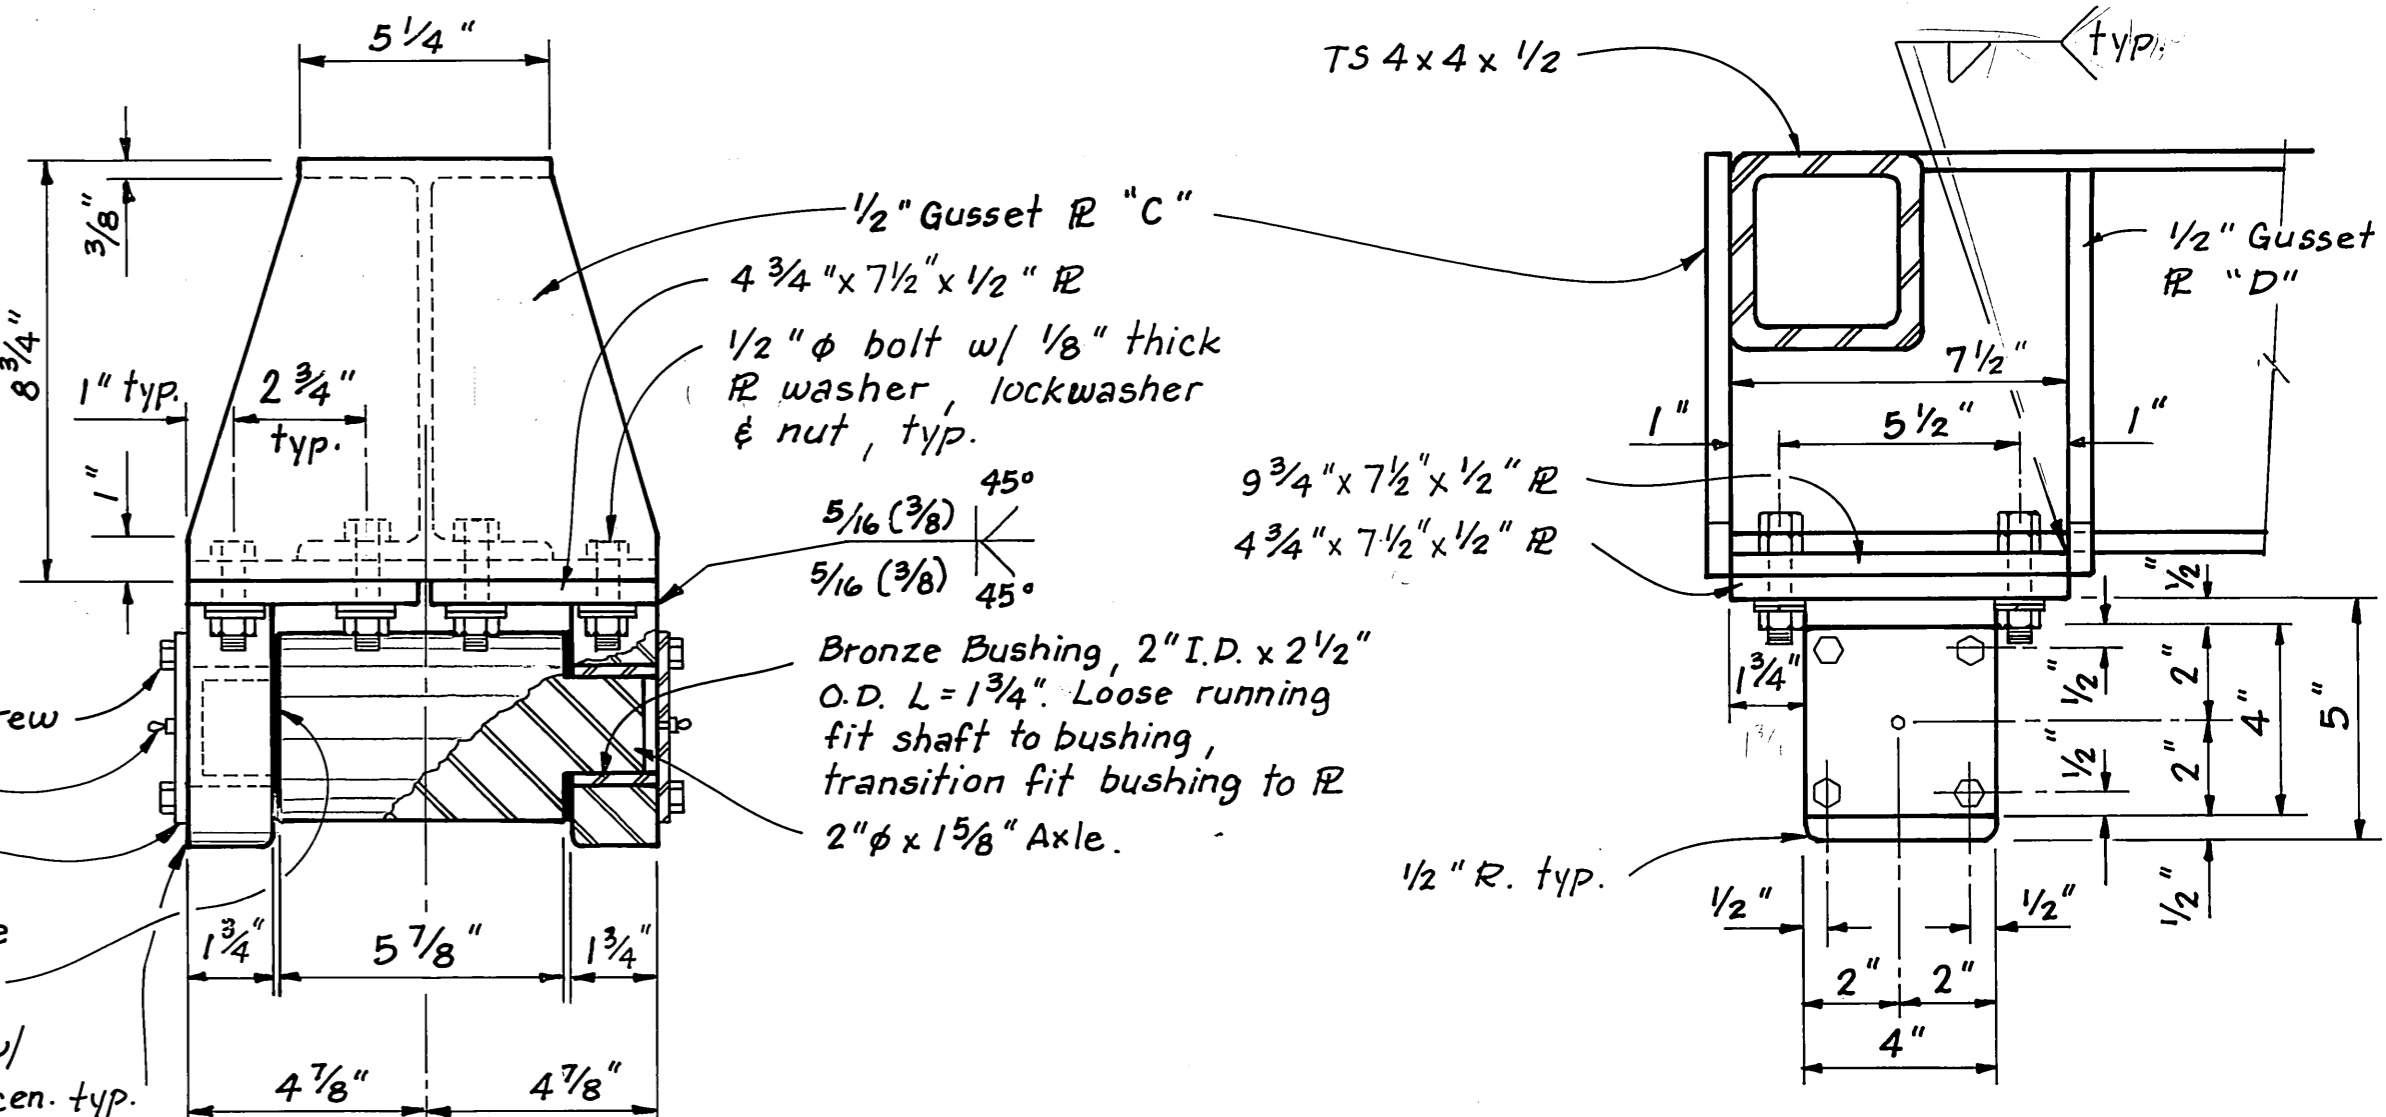 5 1/4"
3/8"
8 3/4"
1" typ.
2 3/4"
typ.
1"
1/2" Gusset PL "C"
4 3/4" x 7 1/2" x 1/2" PL
1/2" φ bolt w/ 1/8" thick
PL washer, lockwasher
& nut, typ.
5/16 (3/8)
45°
5/16 (3/8)
45°
Bronze Bushing, 2" I.D. x 2 1/2"
O.D. L = 1 3/4". Loose running
fit shaft to bushing,
transition fit bushing to PL
2" φ x 1 5/8" Axle.
1 3/4"
5 7/8"
1 3/4"
4 7/8"
4 7/8"
typ.
TS 4 x 4 x 1/2
typ.
1/2" Gusset
PL "D"
7 1/2"
1"
5 1/2"
1"
9 3/4" x 7 1/2" x 1/2" PL
4 3/4" x 7 1/2" x 1/2" PL
1/2"
1 3/4"
1/2"
2"
4"
5"
1/2"
2"
1/2" R. typ.
1/2"
1/2"
1/2"
2"
2"
4"